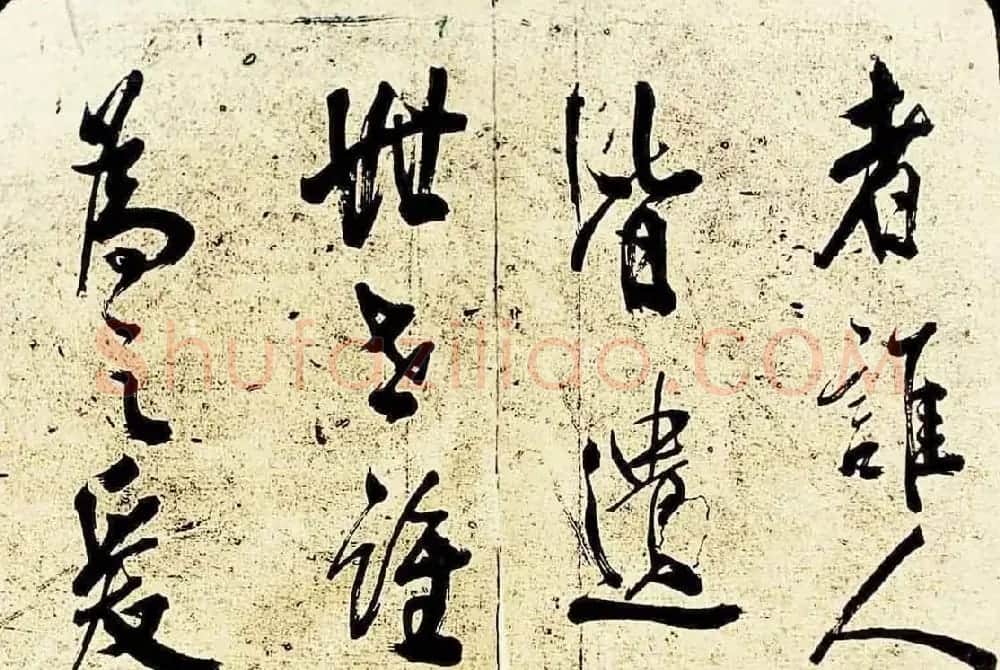 者誰人
皆遺
世誰
為之爰
Shufaziliao.COM